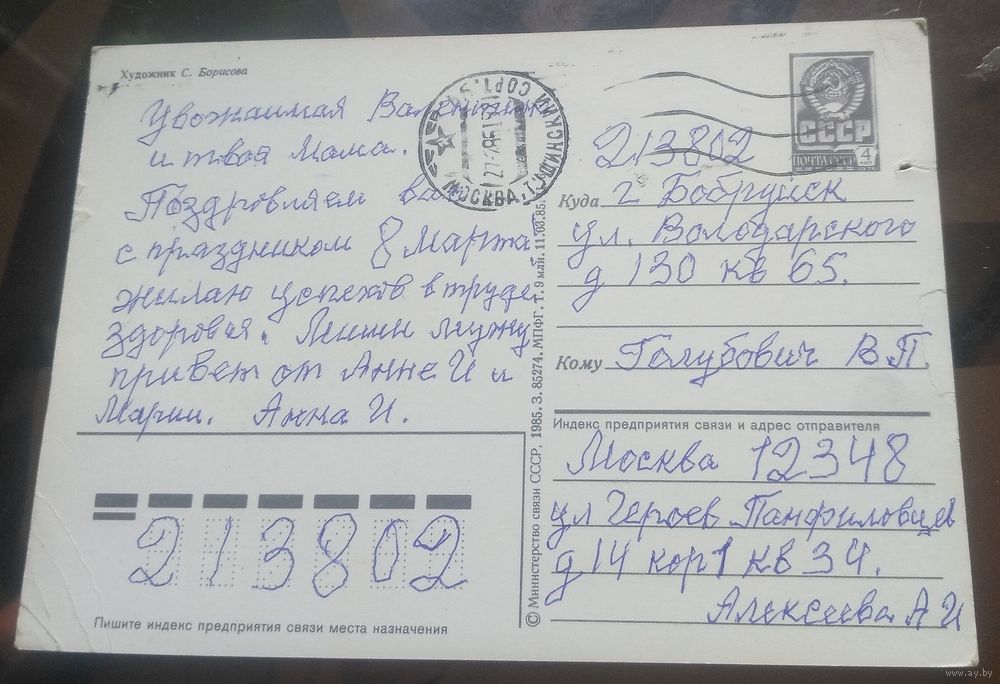 Художник С. Борисова
Уважаимая
и твоя Мама.
Поздровляем ва
с праздником 8 Марта
жилаю успехов в труде
здоровия. Лишии мужу
привет от Анне И и
Марии. Анна И.
213802
Пишите индекс предприятия связи места назначения
МОСКВА,
СССР
ПОЧТА СССР 4
213802
Куда г Бобруйск
ул. Володарского
д 130 кв 65.
Кому Голубович В П.
Индекс предприятия связи и адрес отправителя
Москва 12348
ул Героев Панфиловцев
д 14 кор 1 кв 34.
Алексеева А И
© Министерство связи СССР, 1985. З. 85274. МПФГ. Т. 9 млн. 11.03.85.
www.ay.by